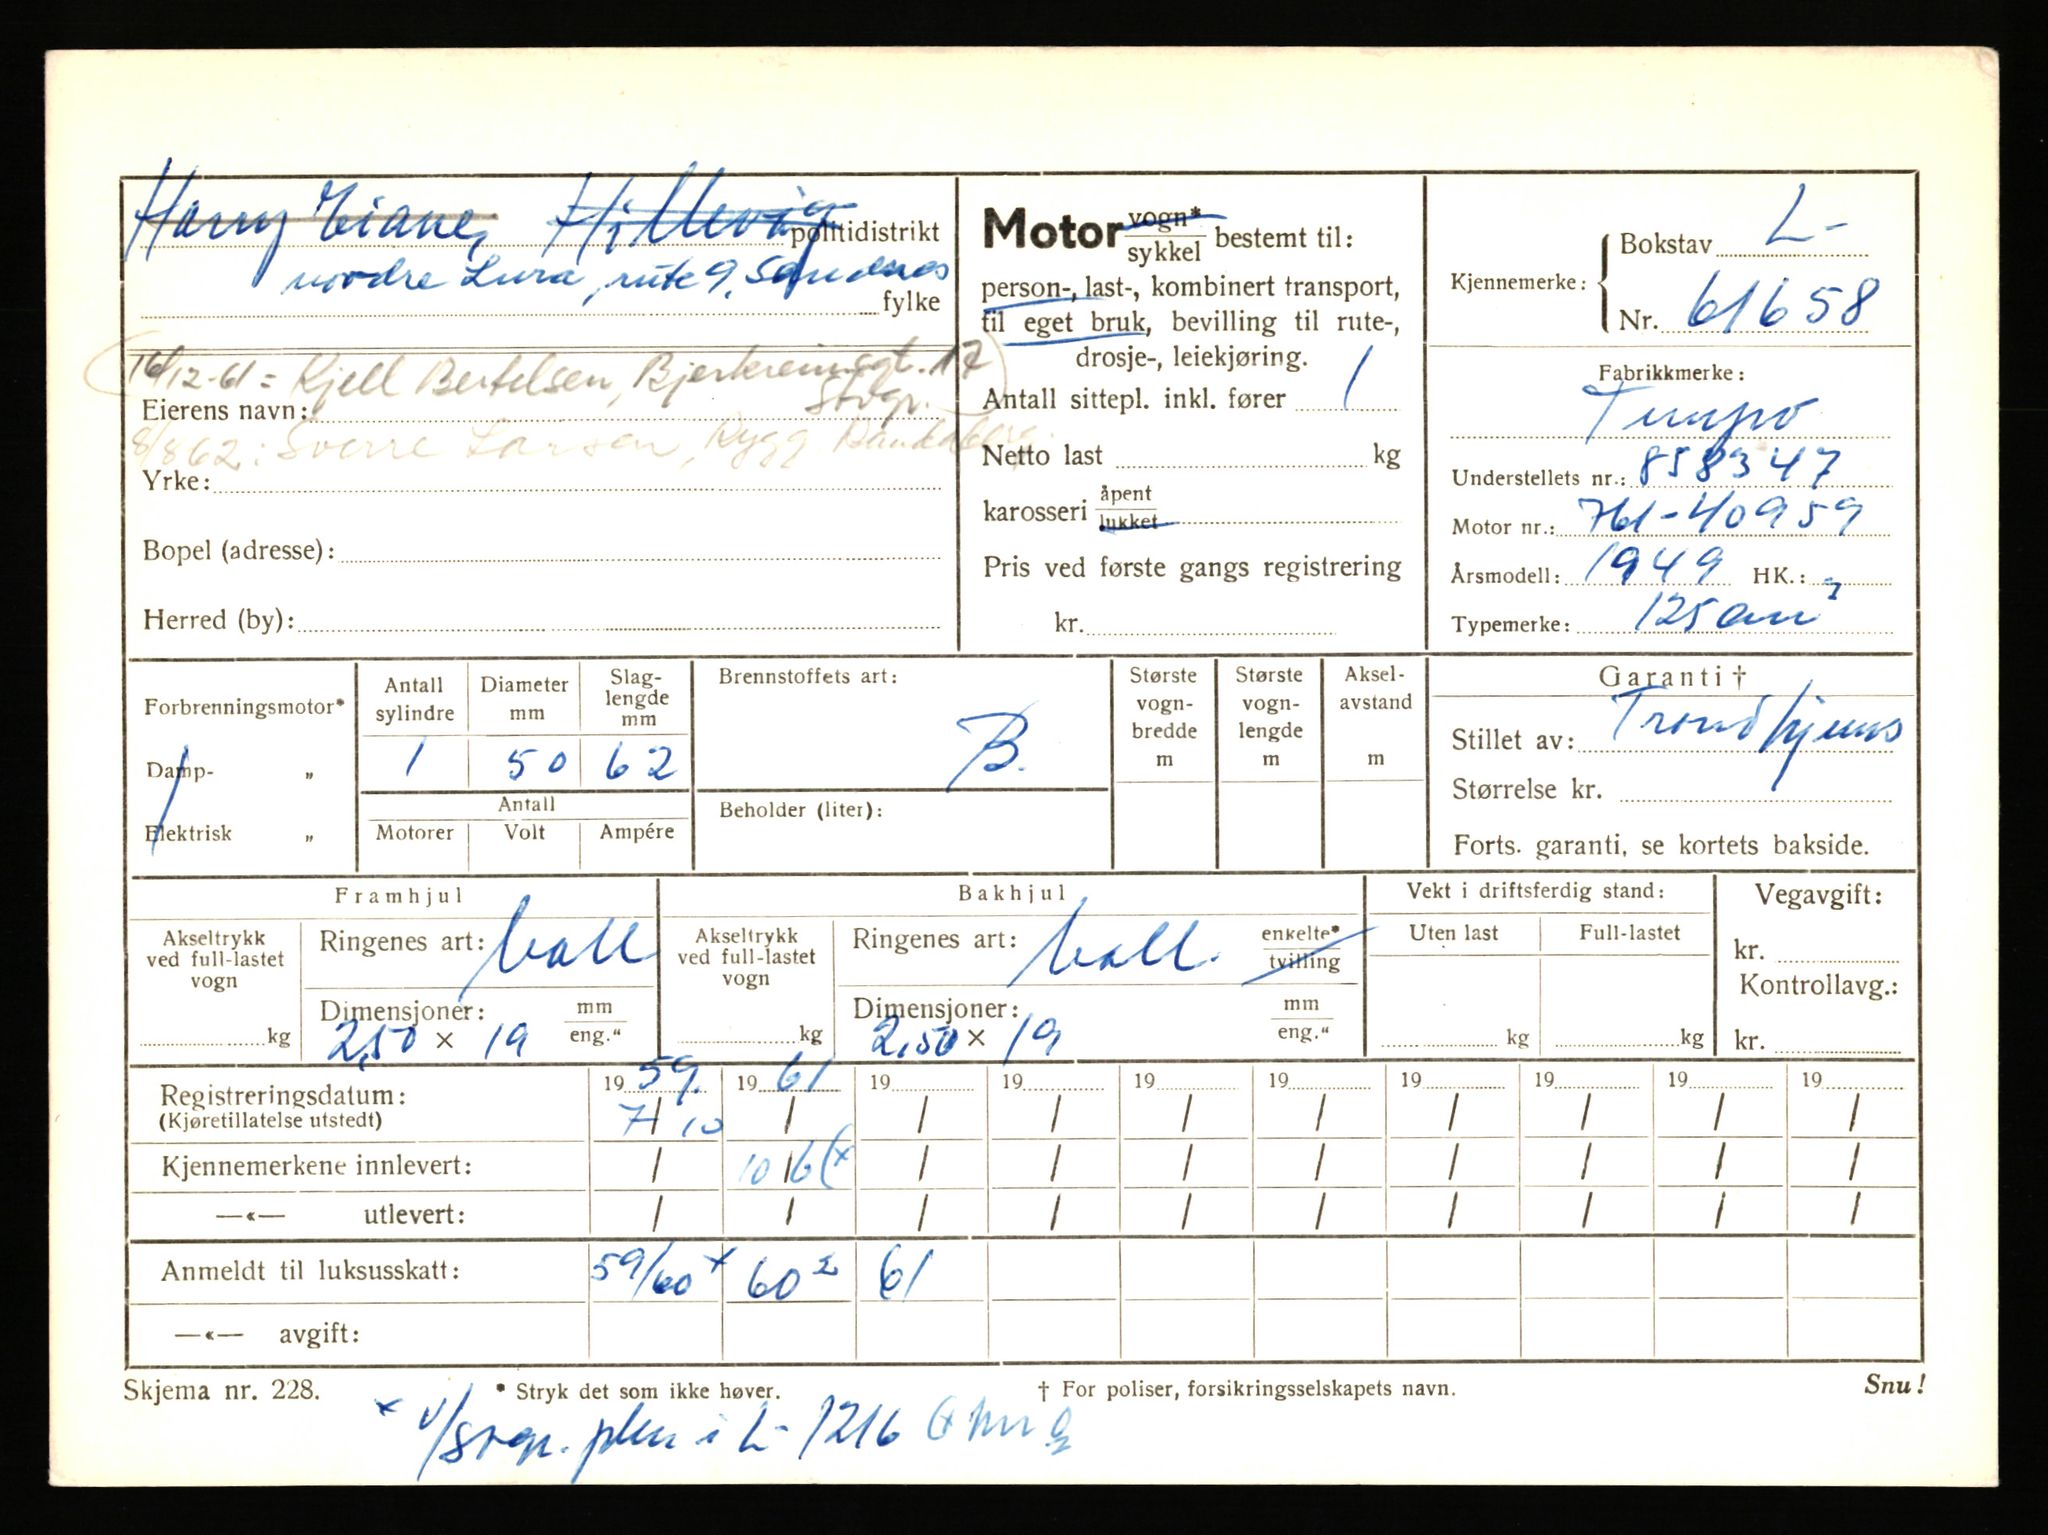 Harry Eiane, Hillevåg politidistrikt
nordre Lura, rute 9, Sandnes
fylke
16/12-61 = Kjell Bertelsen, Bjerkreimsgt. 17
Stvgr.
Eierens navn:
8/8 62: Sverre Larsen, Rygg, Randaberg.
Yrke:
Bopel (adresse):
Herred (by):
Motor vogn*
sykkel bestemt til:
person-, last-, kombinert transport,
til eget bruk, bevilling til rute-,
drosje-, leiekjøring.
Antall sittepl. inkl. fører 1
Netto last kg
karosseri åpent
lukket
Pris ved første gangs registrering
kr.
Kjennemerke: Bokstav L-
Nr. 61658
Fabrikkmerke:
Tempo
Understellets nr.: 858347
Motor nr.: 761-40959
Årsmodell: 1949 HK.:
Typemerke: 125 cm³
Forbrenningsmotor*
Damp- „
Elektrisk „
Antall sylindre Diameter mm Slag-lengde mm
1 50 62
Antall
Motorer Volt Ampére
Brennstoffets art:
B.
Beholder (liter):
Største vogn-bredde m
Største vogn-lengde m
Aksel-avstand m
Garanti †
Stillet av: Trondhjems
Størrelse kr.
Forts. garanti, se kortets bakside.
Framhjul
Akseltrykk ved full-lastet vogn
kg
Ringenes art: ball
Dimensjoner: mm
2,50 × 19 eng."
Bakhjul
Akseltrykk ved full-lastet vogn
kg
Ringenes art: ball. enkelte*
tvilling
Dimensjoner: mm
2,50 × 19 eng."
Vekt i driftsferdig stand:
Uten last Full-lastet
kg kg
Vegavgift:
kr.
Kontrollavg.:
kr.
Registreringsdatum: 19 59. 19 61 19 19 19 19 19 19 19 19
(Kjøretillatelse utstedt) 7/10 / / / / / / / / /
Kjennemerkene innlevert: / 10/6 (x / / / / / / / /
—«— utlevert: / / / / / / / / / /
Anmeldt til luksusskatt: 59/60 x 60 2 61
—«— avgift:
Skjema nr. 228. * Stryk det som ikke høver. † For poliser, forsikringsselskapets navn. Snu!
x v/Svgr. i L- 1216